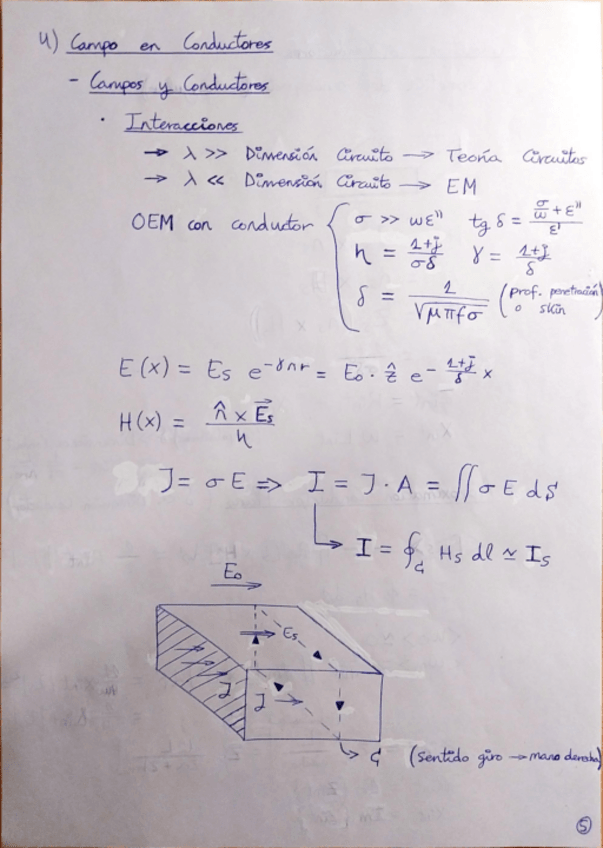 4) Campo en Conductores
- Campos y Conductores
· Interacciones
→ λ >> Dimensión Circuito → Teoría Circuitos
→ λ << Dimensión Circuito → EM
OEM con conductor { σ >> ωε'' tg δ = (σ/ω + ε'')/ε'
η = (1+j)/(σδ) γ = (1+j)/δ
δ = 1/√(μπfσ) (prof. penetración o skin)
E(x) = Es e^(-γnr) = Eo · ẑ e^(-(1+j)/δ x)
H(x) = (n̂ × E⃗s)/η
J = σE => I = J · A = ∬ σ E dS
↳ I = ∮_C Hs dl ≃ Is
Eo
Es
J
J
C (sentido giro → mano derecha)
5